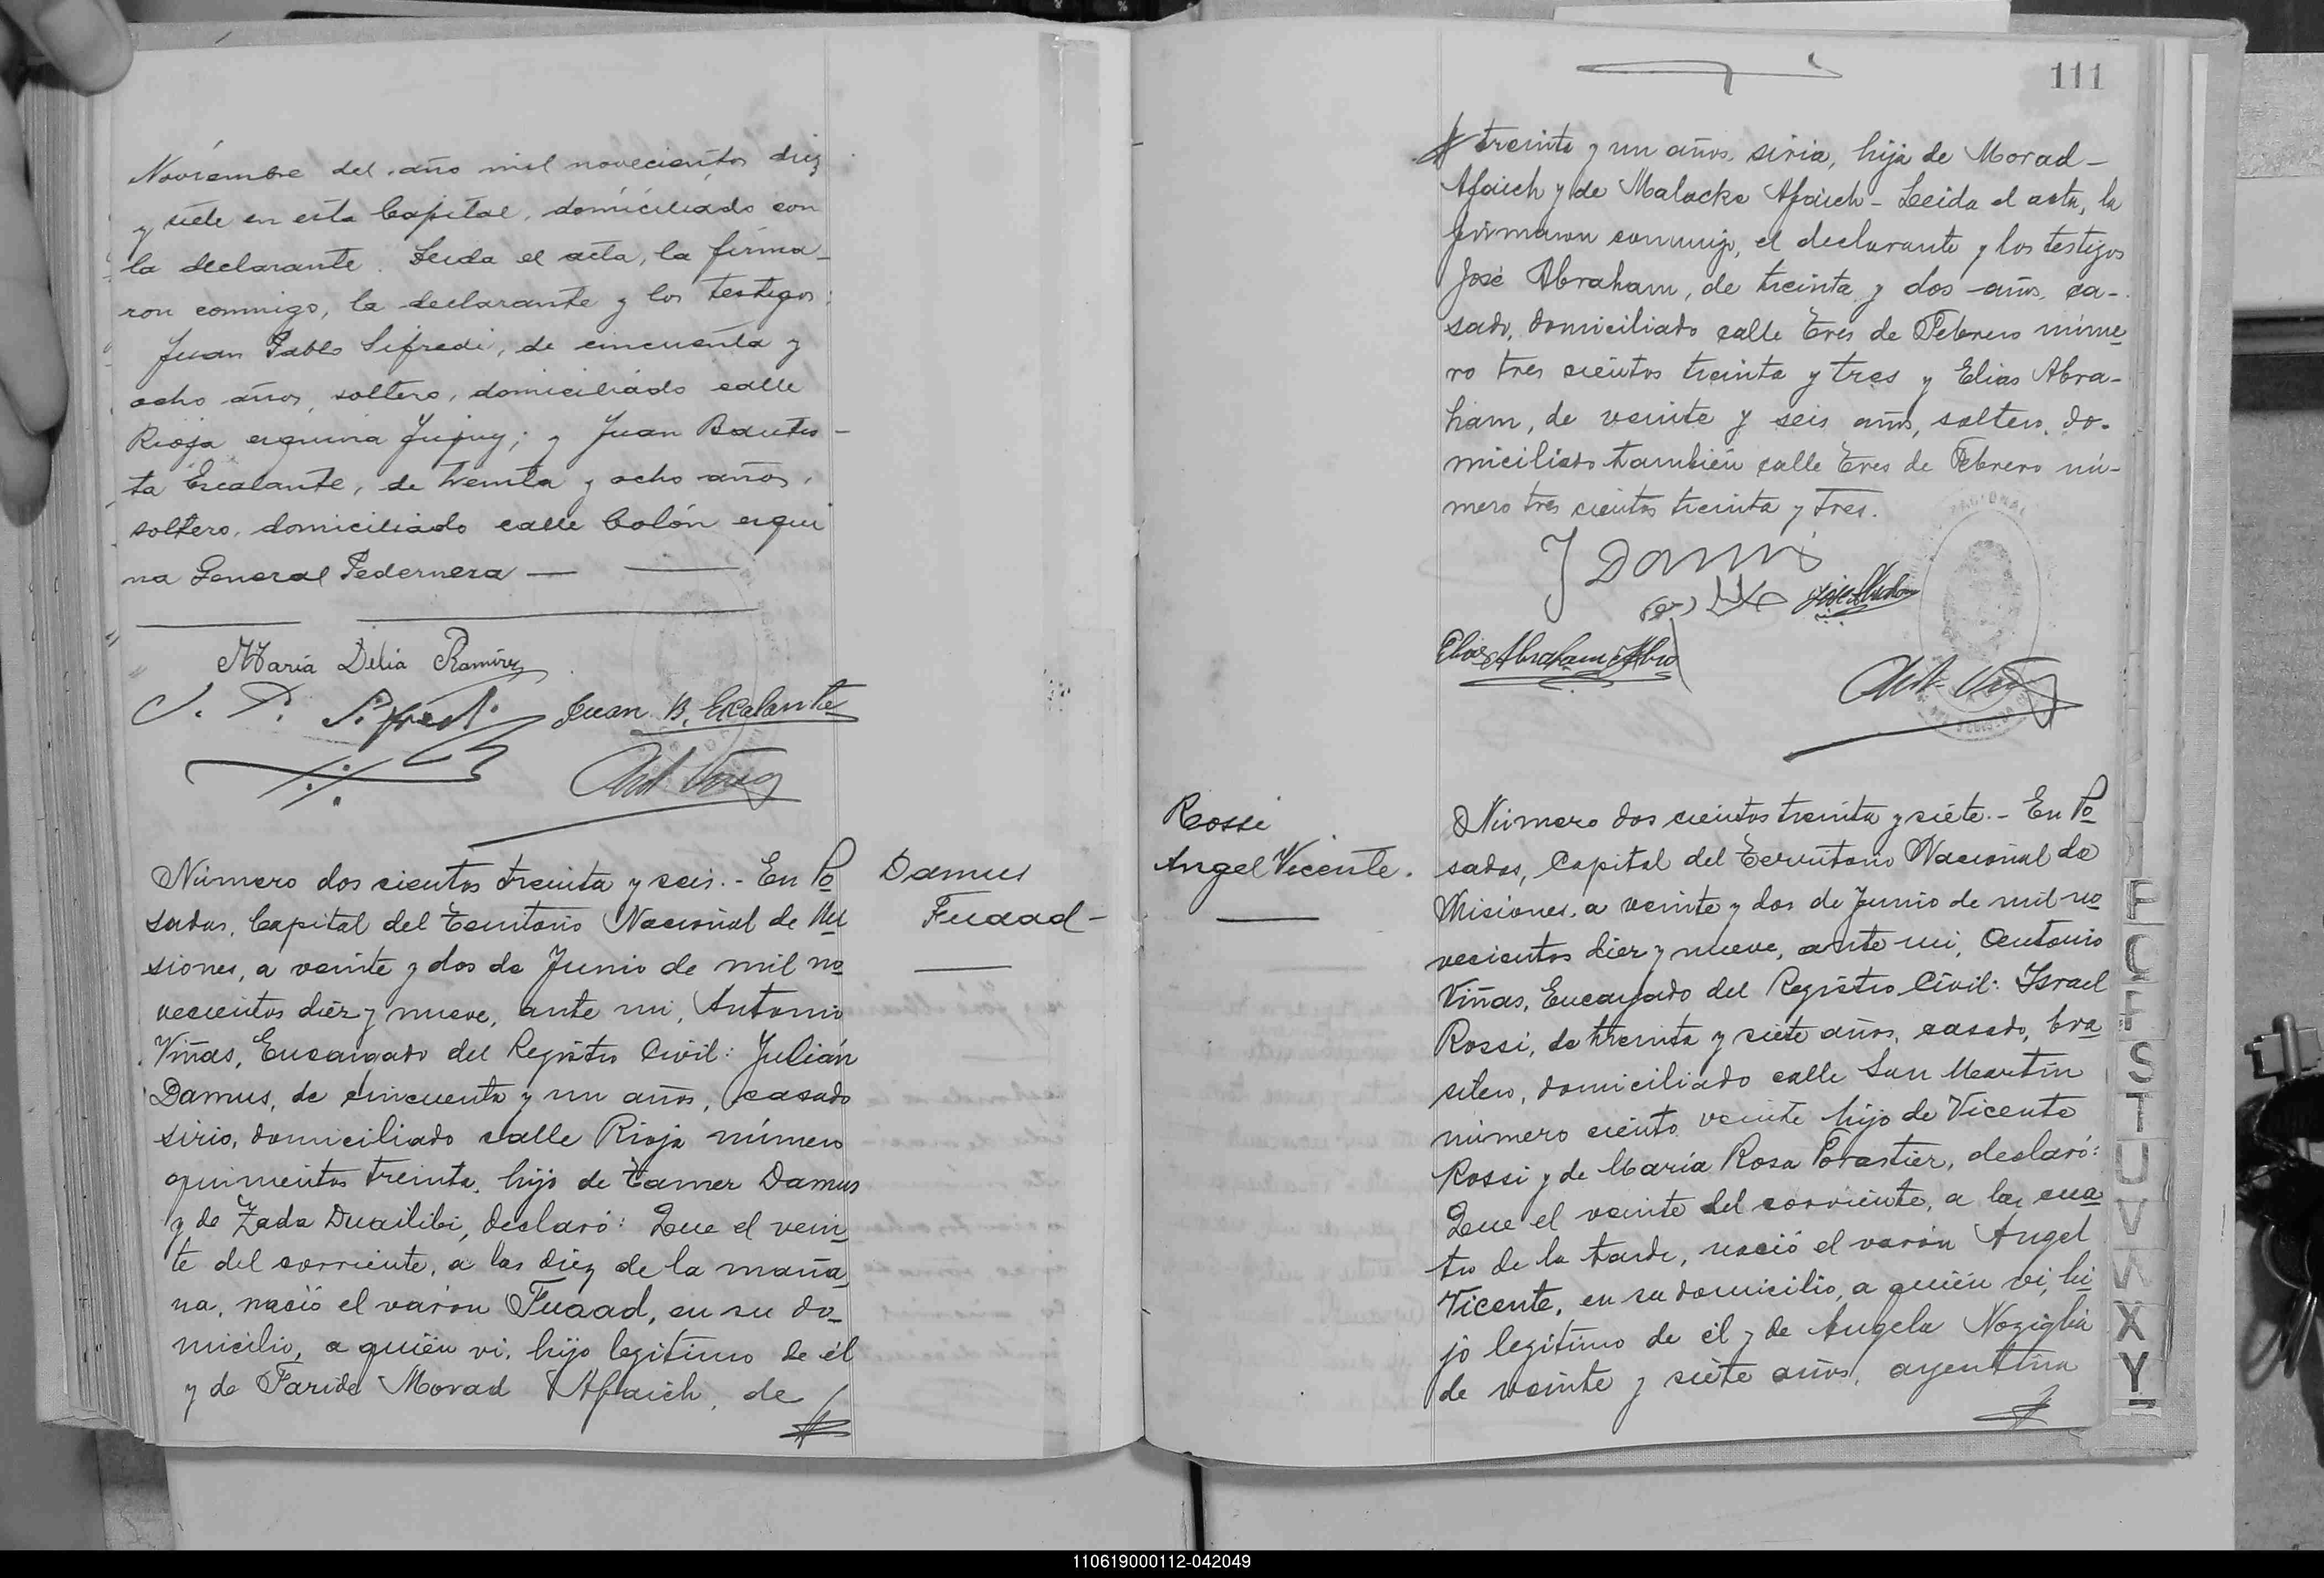 Noviembre del año mil novecientos diez
y siete en esta Capital, domiciliado con
la declarante. Leida el acta, la firma-
ron conmigo, la declarante y los testigos:
Juan Pablo Sifredi, de cincuenta y
ocho años, soltero, domiciliado calle
Rioja esquina Jujuy; y Juan Bautis-
ta Escalante, de treinta y ocho años,
soltero, domiciliado calle Colón esqui
na General Pedernera —
Maria Delia Ramirez
J. P. Sifredi Juan B. Escalante
Ant. Viñas
Número dos cientos treinta y seis.- En Po
sadas, Capital del Territorio Nacional de Mi
siones, a veinte y dos de Junio de mil no
vecientos diez y nueve, ante mi, Antonio
Viñas, Encargado del Registro Civil: Julián
Damus, de cincuenta y un años, casado
sirio, domiciliado calle Rioja número
quinientos treinta, hijo de Tamer Damus
y de Zada Duailibi, declaró: Que el vein
te del corriente, a las diez de la maña
na, nació el varón Fuaad, en su do
micilio, a quién vi, hijo legitimo de él
y de Faride Morad Afaich, de
Damus
Fuaad -
111
treinta y un años, siria, hija de Morad-
Afaich y de Malacke Afaich - Leida el acta, la
firmaron conmigo, el declarante y los testigos
José Abraham, de treinta y dos años, ca-
sado, domiciliado calle Tres de Febrero núme
ro tres cientos treinta y tres y Elias Abra-
ham, de veinte y seis años, soltero, do-
miciliado también calle Tres de Febrero nú-
mero tres cientos treinta y tres.
J Damus
José Abraham
Elias Abraham
Ant. Viñas
Rossi
Angel Vicente.
Número dos cientos treinta y siete.- En Po
sadas, Capital del Territorio Nacional de
Misiones, a veinte y dos de Junio de mil no
vecientos diez y nueve, ante mi, Antonio
Viñas, Encargado del Registro Civil: Israel
Rossi, de treinta y siete años, casado, bra
silero, domiciliado calle San Martin
número ciento veinte hijo de Vicente
Rossi y de Maria Rosa Forastier, declaró:
Que el veinte del corriente, a las cua
tro de la tarde, nació el varón Angel
Vicente, en su domicilio, a quién vi, hi
jo legitimo de él y de Angela Noziglia
de veinte y siete años, argentina
P
Q
R
S
T
U
V
W
X
Y
110619000112-042049